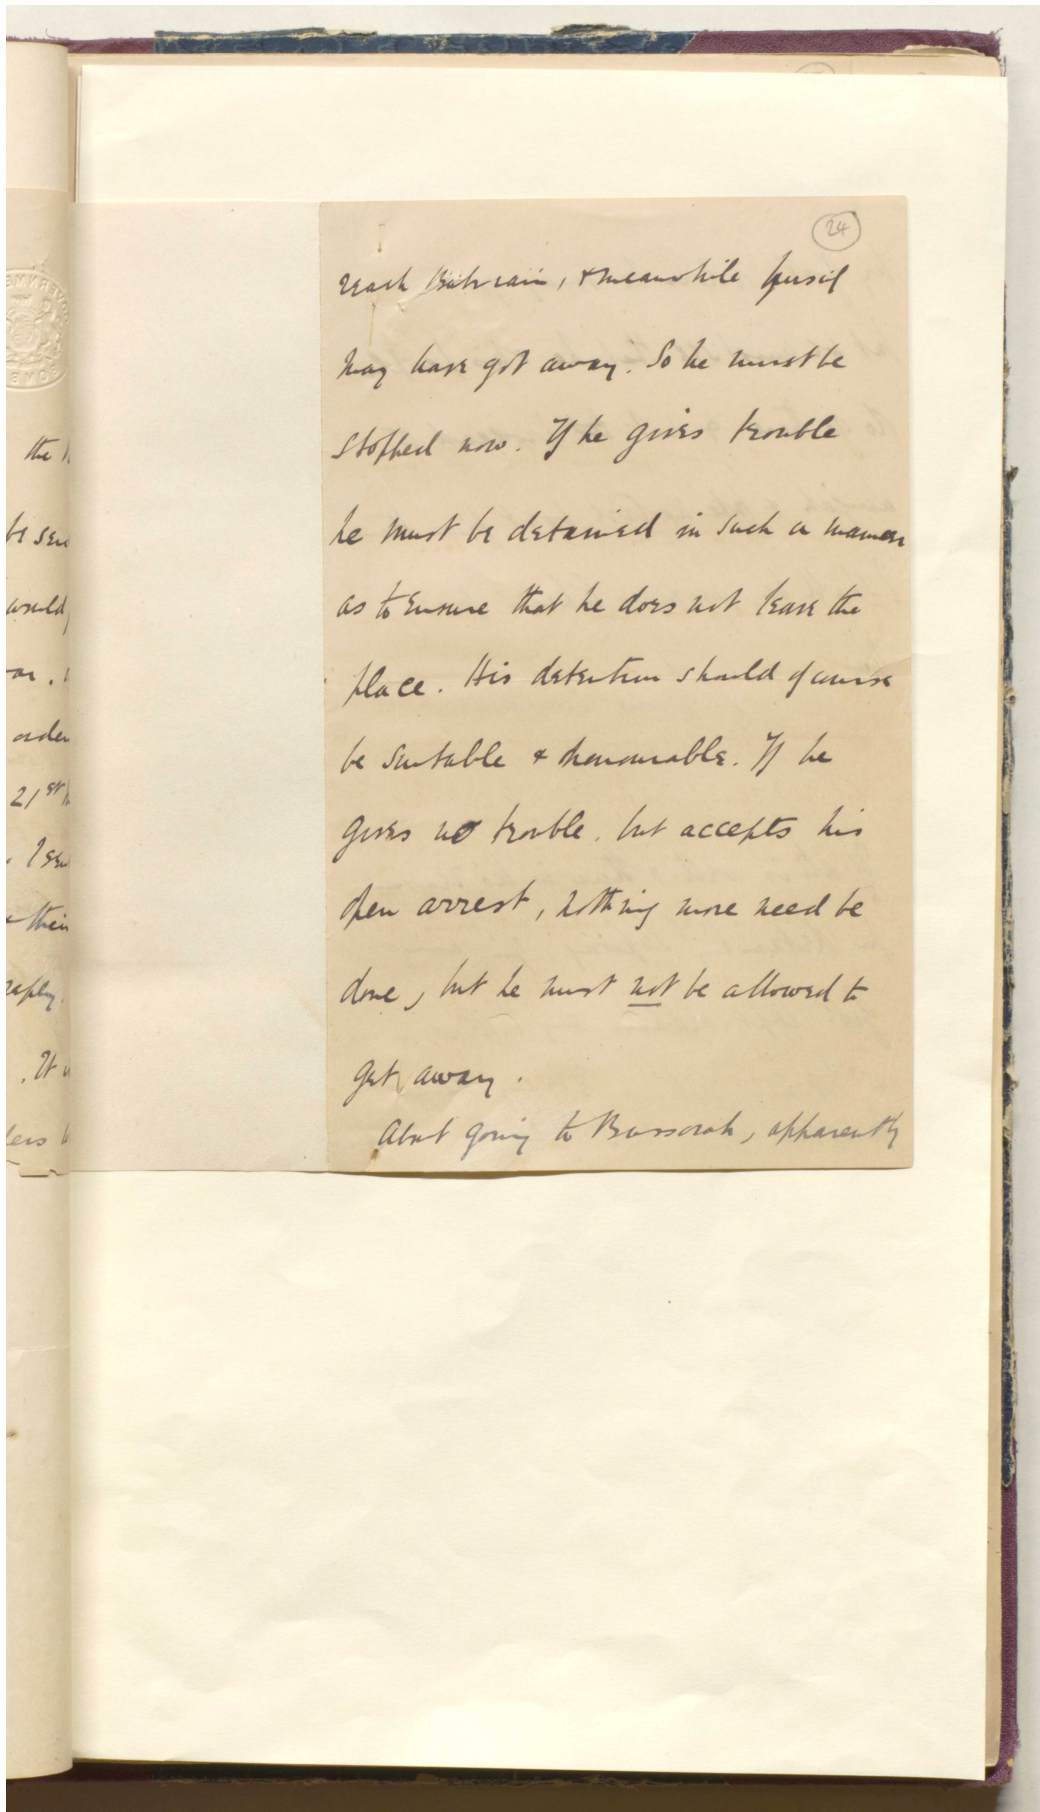 the
be sen
would
or.
order
21st
their
. It
24
reach Bahrain, & meanwhile Yusif
may have got away. So he must be
stopped now. If he gives trouble
he must be detained in such a manner
as to ensure that he does not leave the
place. His detention should of course
be suitable & honourable. If he
gives no trouble. but accepts his
open arrest, nothing more need be
done, but he must not be allowed to
get away.
About going to Bussorah, apparently